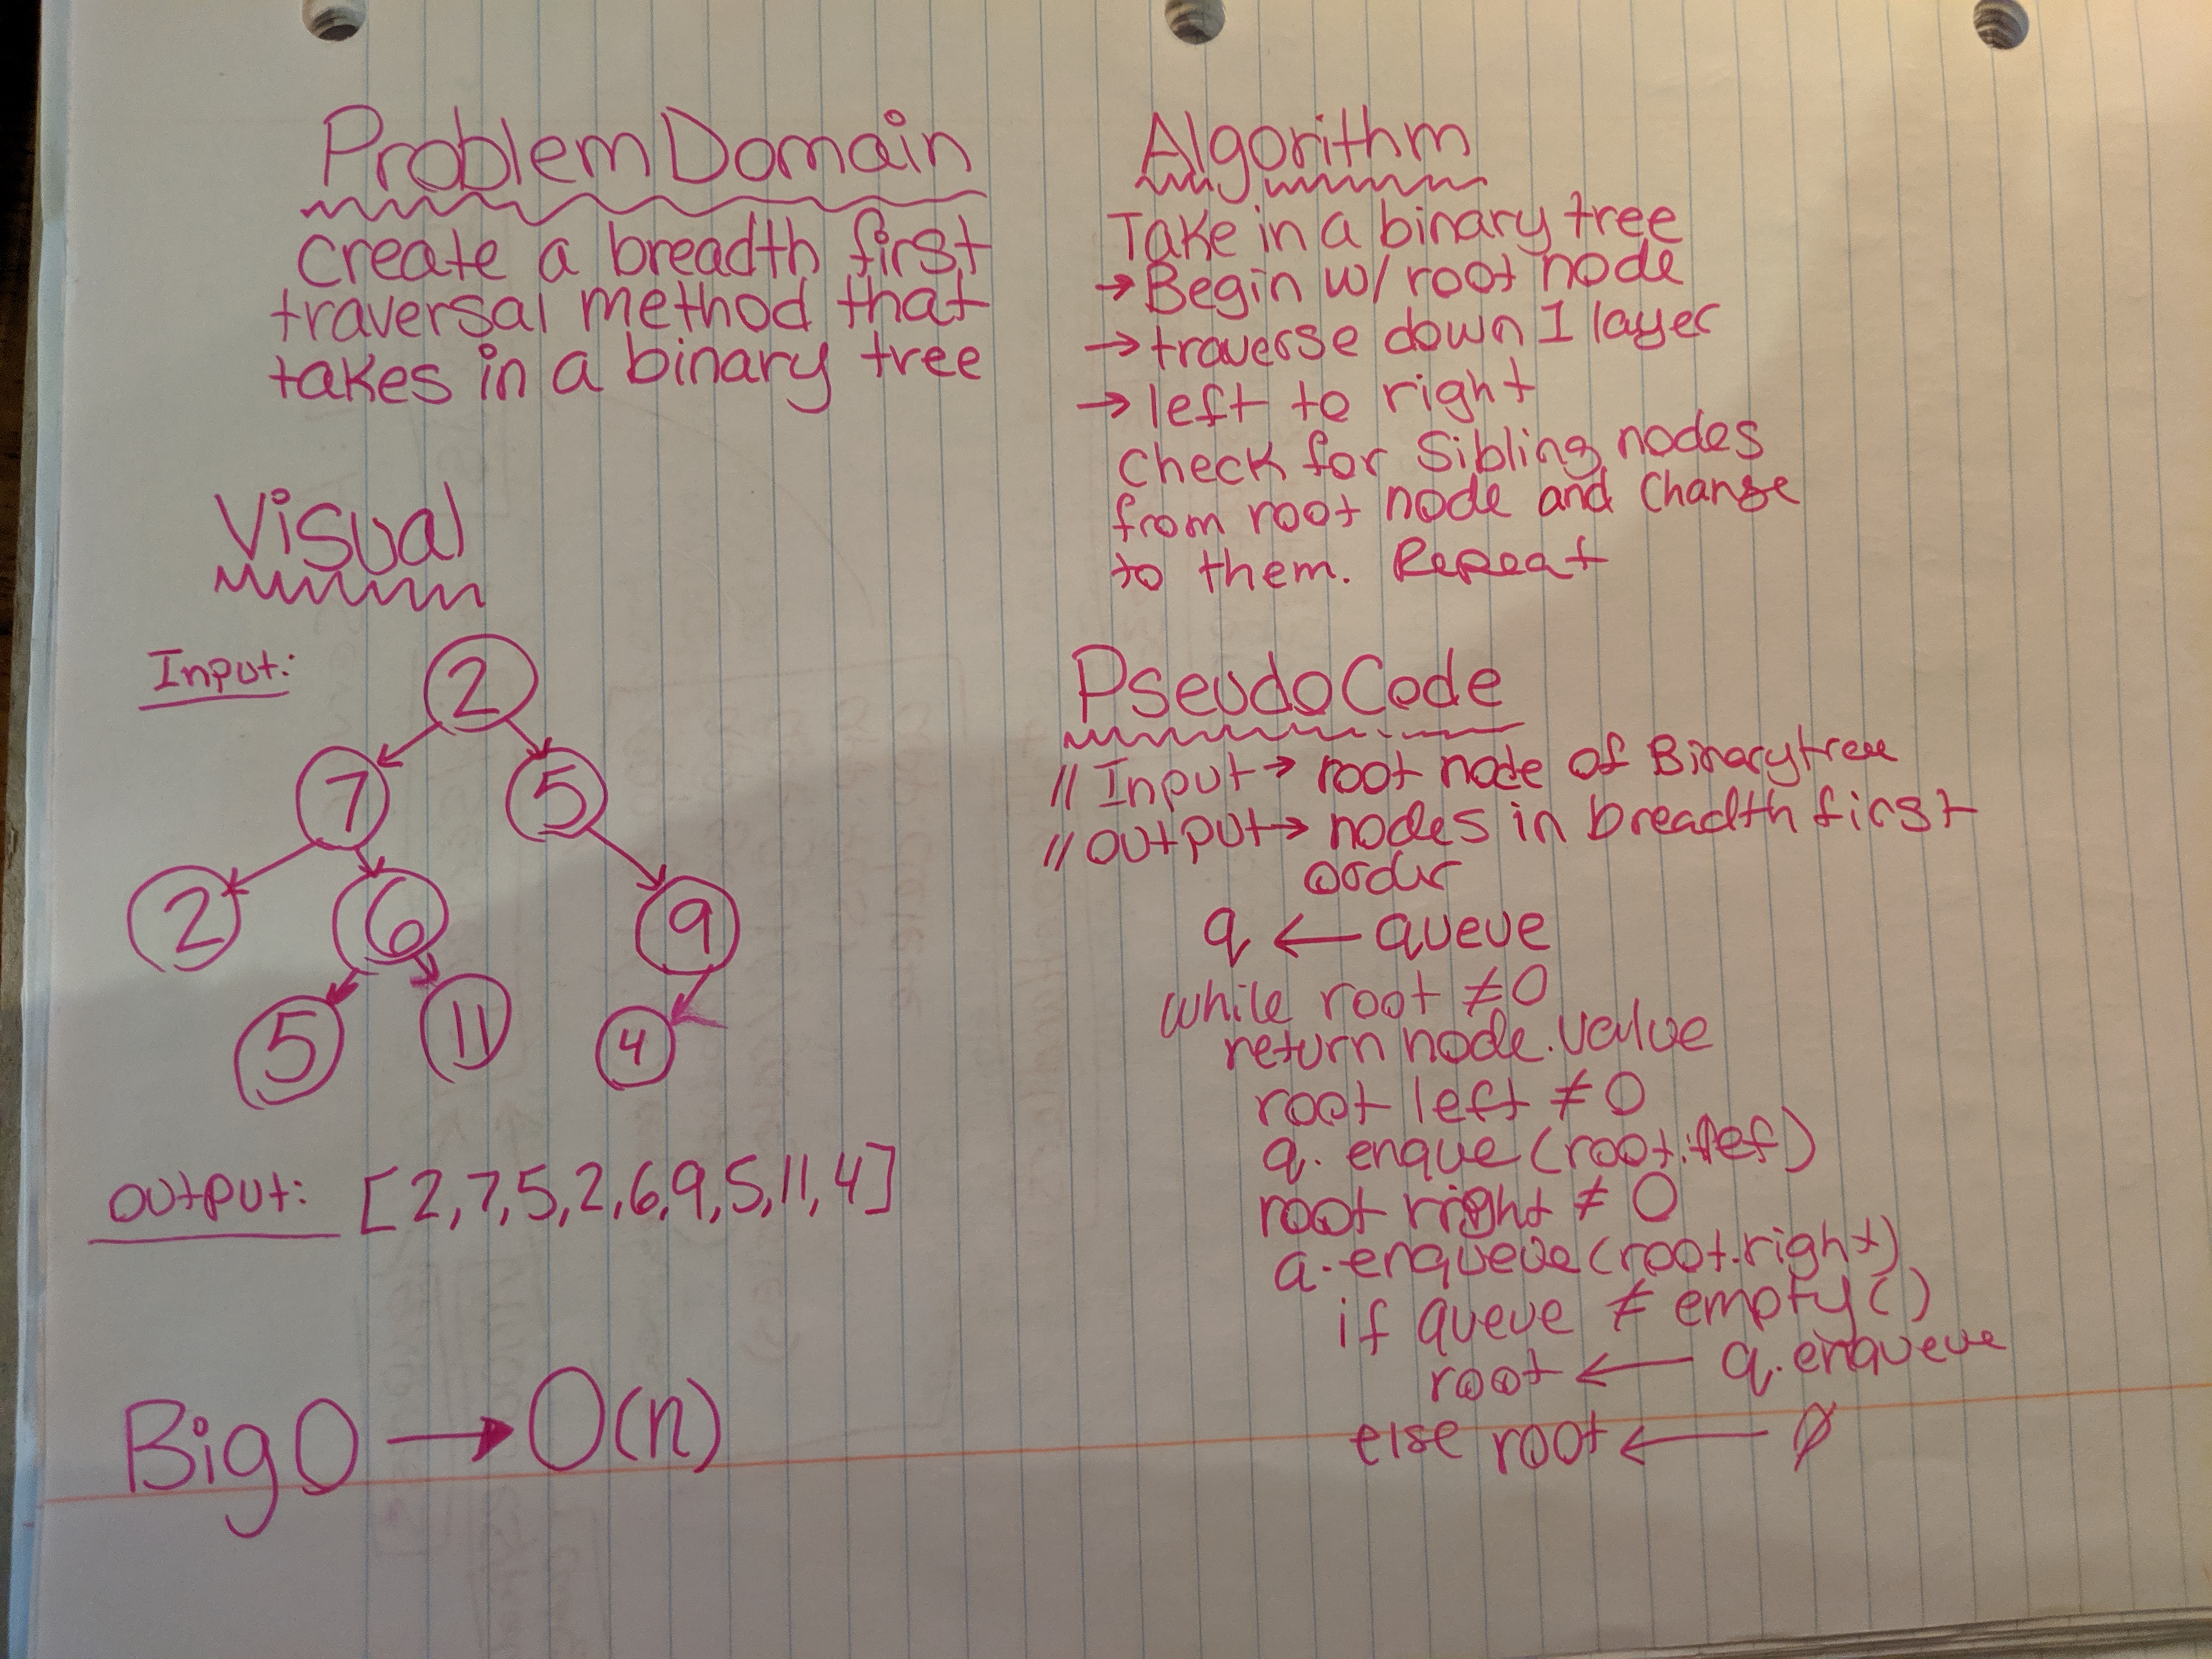 Problem Domain
Create a breadth first
traversal method that
takes in a binary tree
Visual
Input:
2
7
5
2
6
9
5
11
4
output: [2,7,5,2,6,9,5,11,4]
Big O → O(n)
Algorithm
Take in a binary tree
→ Begin w/ root node
→ traverse down 1 layer
→ left to right
Check for sibling nodes
from root node and change
to them. Repeat
Pseudo Code
// Input → root node of Binary tree
// output → nodes in breadth first
q ← queue
while root ≠ 0
return node.value
root left ≠ 0
q. enque (root.left)
root right ≠ 0
q. enqueue (root.right)
if queue ≠ empty()
root ← q.enqueue
else root ← ∅